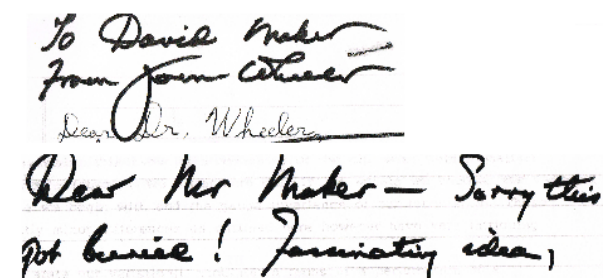 To David Maker
From John Wheeler
Dear Dr. Wheeler,
Dear Mr Maker — Sorry this
got buried! Fascinating idea,